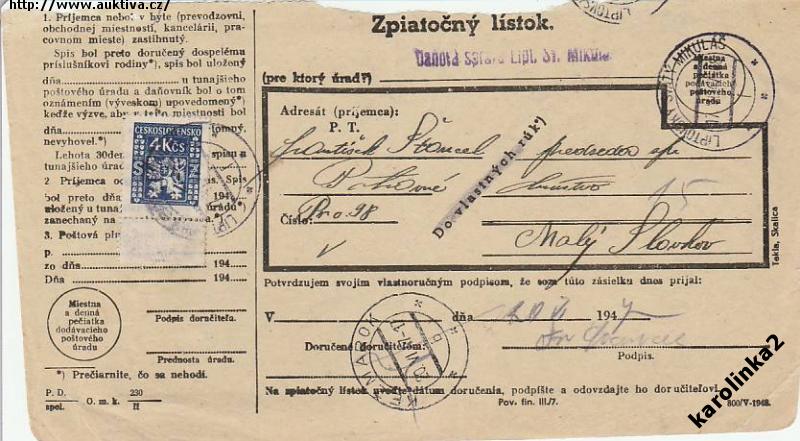 http://www.auktiva.cz/
1. Príjemca nebol v byte (prevodzovni,
obchodnej miestnosti, kancelárii, pra-
covnom mieste) zastihnutý.
Spis bol preto doručený dospelému
príslušníkovi rodiny*), spis bol uložený
dňa u tunajšieho
poštového úradu a daňovník bol o tom
oznámením (výveskom) upovedomený*)
keďže výzve, aby v
dňa
nevyhovel.*)
Lehota 30den
tunajšieho úra
2 Príjemca od is. Spis
bol preto dňa 194
uložený u tun úradu*)
zanechaný na
3. Poštová pl
p.
zo dňa 194
Dňa 194
Miestna
a denná
pečiatka
dodávacieho
poštového
úradu
Podpis doručiteľa.
Prednosta úradu.
*) Prečiarnite, čo sa nehodí.
P. D. 230
spol. O. m. k. II
ČESKOSLOVENSKO
4 Kčs
Zpiatočný lístok.
Daňová správa Lipt. Sv. Mikuláš
(pre ktorý úrad?)
LIPTOVSKÝ SVÄTÝ MIKULÁŠ
Miestna
a denná
pečiatka
podávacieho
poštového
úradu
Adresát (príjemca):
P. T.
František Štancel predseda
Do vlastných rúk
15
Číslo: Pro. 98
Malý Slavkov
Tekla, Skalica
Potvrdzujem svojim vlastnoručným podpisom, že som túto zásielku dnes prijal:
V dňa 20 VI 1947
Doručené doručiteľom:
Podpis.
KEŽMAROK
20. VI. 47
Na zpiatočný lístok uveďte dátum doručenia, podpíšte a odovzdajte ho doručiteľovi.
Pov. fin. III./7.
800/V-1948.
karolinka2